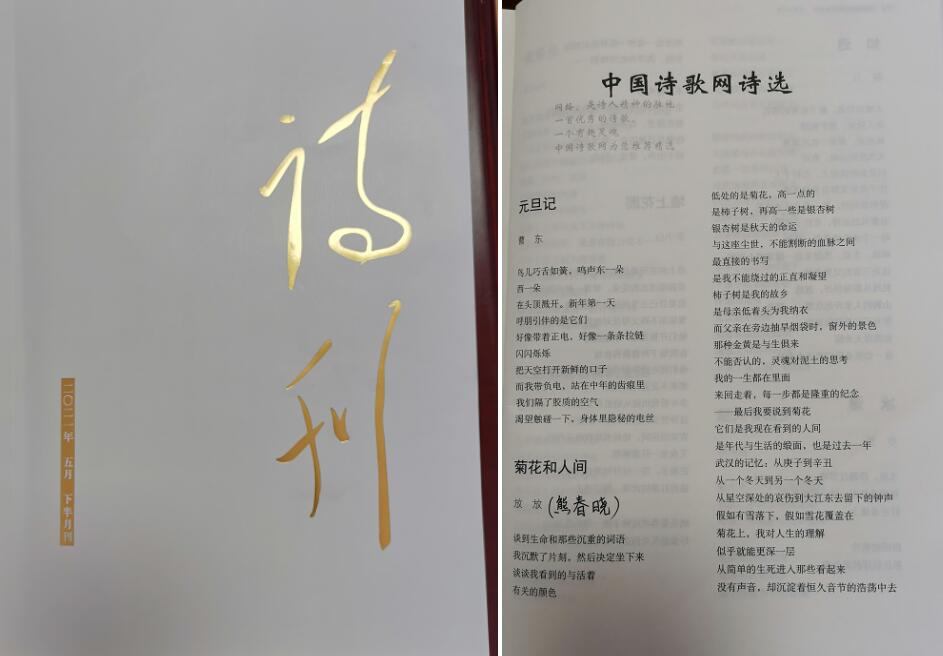 诗刊
二〇二一年 五月 下半月刊
中国诗歌网诗选
网络，是诗人精神的驻地
一首优秀的诗歌，
一个有趣灵魂
中国诗歌网为您推荐精选
元旦记
曹 东
鸟儿巧舌如簧，鸣声东一朵
西一朵
在头顶溅开。新年第一天
呼朋引伴的是它们
好像带着正电，好像一条条拉链
闪闪烁烁
把天空打开新鲜的口子
而我带负电，站在中年的齿痕里
我们隔了胶质的空气
渴望触碰一下，身体里隐秘的电丝
菊花和人间
放 放（熊春晓）
谈到生命和那些沉重的词语
我沉默了片刻，然后决定坐下来
谈谈我看到的与活着
有关的颜色
低处的是菊花，高一点的
是柿子树，再高一些是银杏树
银杏树是秋天的命运
与这座尘世，不能割断的血脉之间
最直接的书写
是我不能绕过的正直和凝望
柿子树是我的故乡
是母亲低着头为我纳衣
而父亲在旁边抽旱烟袋时，窗外的景色
那种金黄是与生俱来
不能否认的，灵魂对泥土的思考
我的一生都在里面
来回走着，每一步都是隆重的纪念
——最后我要说到菊花
它们是我现在看到的人间
是年代与生活的缎面，也是过去一年
武汉的记忆：从庚子到辛丑
从一个冬天到另一个冬天
从星空深处的哀伤到大江东去留下的钟声
假如有雪落下，假如雪花覆盖在
菊花上，我对人生的理解
似乎就能更深一层
从简单的生死进入那些看起来
没有声音，却沉淀着恒久音节的浩荡中去